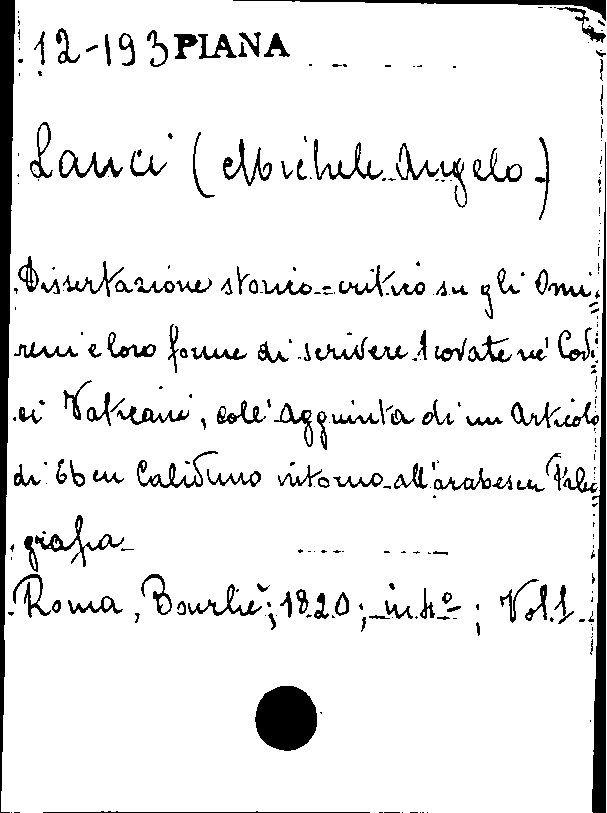 12-193 PIANA
Lanci (Michele Angelo)
Dissertazione storico=critico su gli Omi,
reni e loro forme di scrivere trovate ne' Codi
ci Vaticani, coll' Aggiunta di un Articolo
di Eben Caliduno intorno all'arabesca Paleo
grafia
Roma, Bourliè; 1820; in 4º; Vol. 1